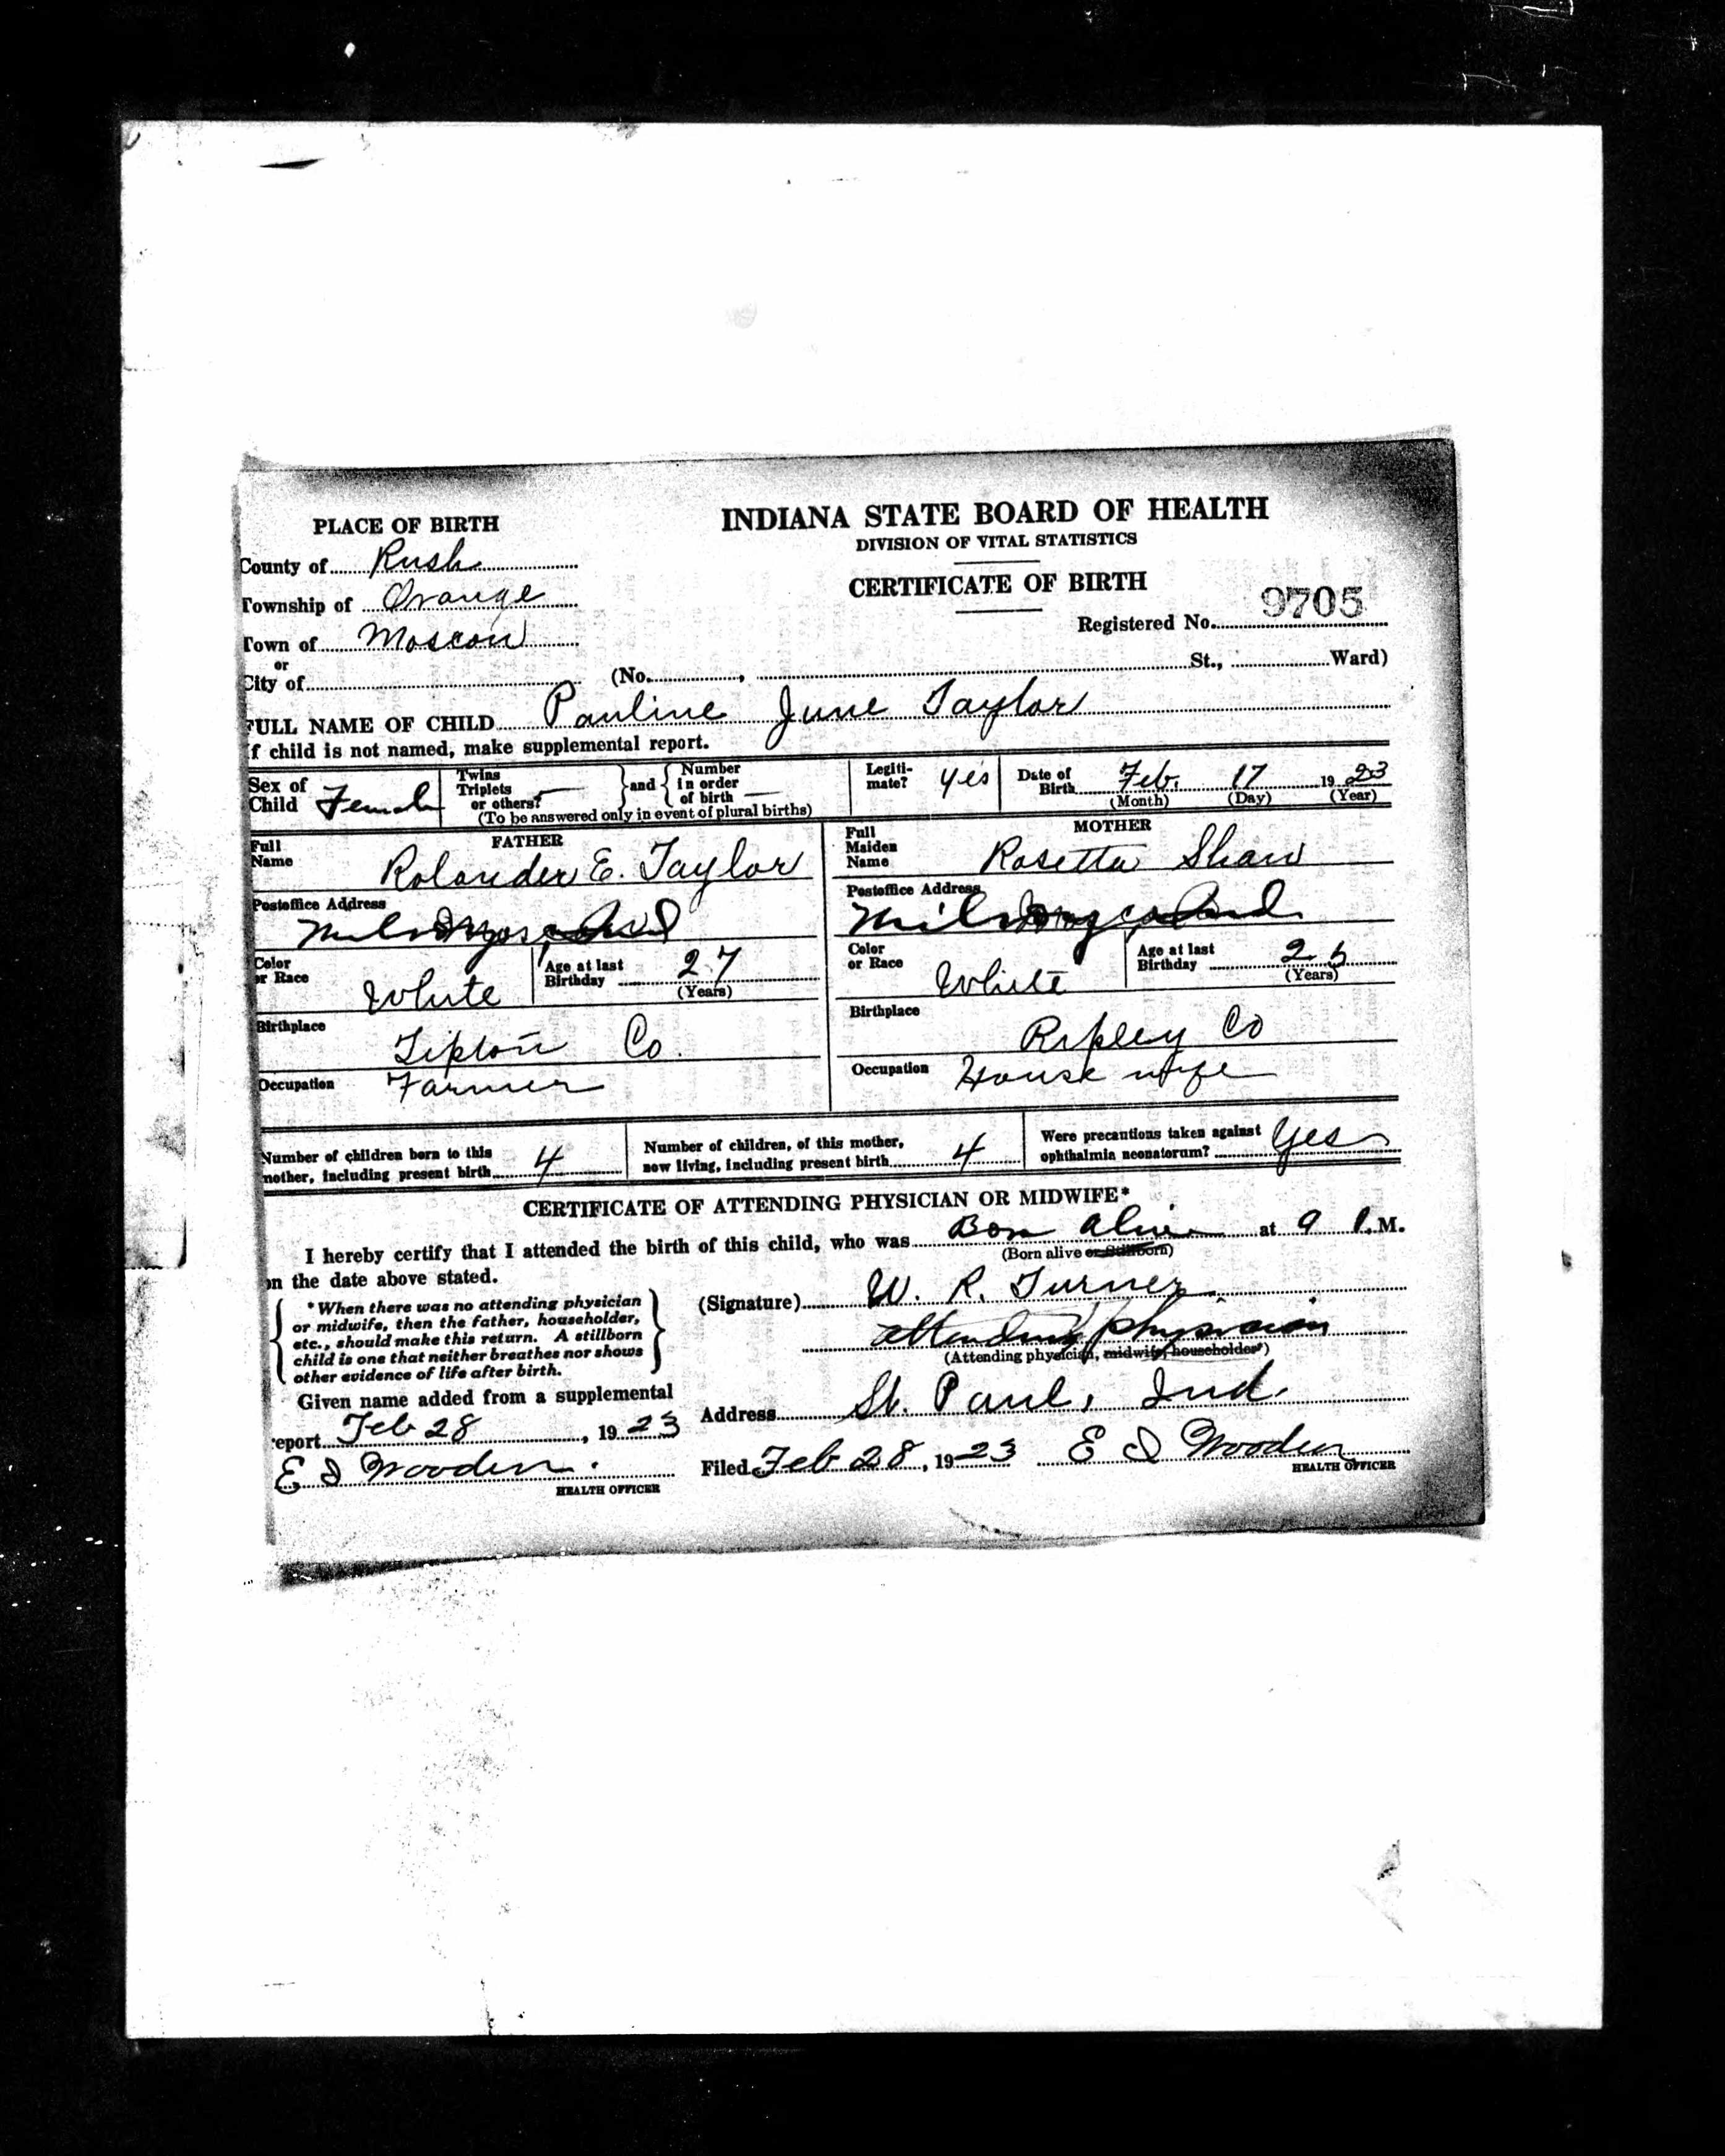 PLACE OF BIRTH
INDIANA STATE BOARD OF HEALTH
DIVISION OF VITAL STATISTICS
CERTIFICATE OF BIRTH
County of Rush
Township of Orange
Town of Moscow
or
City of
Registered No. 9705
(No. , St., Ward)
FULL NAME OF CHILD Pauline June Taylor
If child is not named, make supplemental report.
Sex of Child Female
Twins Triplets or others? — and Number in order of birth —
(To be answered only in event of plural births)
Legiti-mate? yes
Date of Birth Feb. 17 1923
(Month) (Day) (Year)
FATHER
Full Name Rolander E. Taylor
Postoffice Address
Color or Race White
Age at last Birthday 27
(Years)
Birthplace Tipton Co.
Occupation Farmer
MOTHER
Full Maiden Name Rosetta Shaw
Postoffice Address
Color or Race White
Age at last Birthday
(Years)
Birthplace Ripley Co
Occupation House wife
Number of children born to this mother, including present birth 4
Number of children, of this mother, now living, including present birth 4
Were precautions taken against ophthalmia neonatorum? Yes
CERTIFICATE OF ATTENDING PHYSICIAN OR MIDWIFE*
I hereby certify that I attended the birth of this child, who was Born Alive at 9 M.
(Born alive or Stillborn)
on the date above stated.
*When there was no attending physician
or midwife, then the father, householder,
etc., should make this return. A stillborn
child is one that neither breathes nor shows
other evidence of life after birth.
(Signature) W. R. Turner
attending physician
(Attending physician, midwife, householder*)
Given name added from a supplemental
report Feb 28, 1923
E I Wooden.
HEALTH OFFICER
Address St. Paul, Ind.
Filed Feb 28, 1923 E I Wooden
HEALTH OFFICER